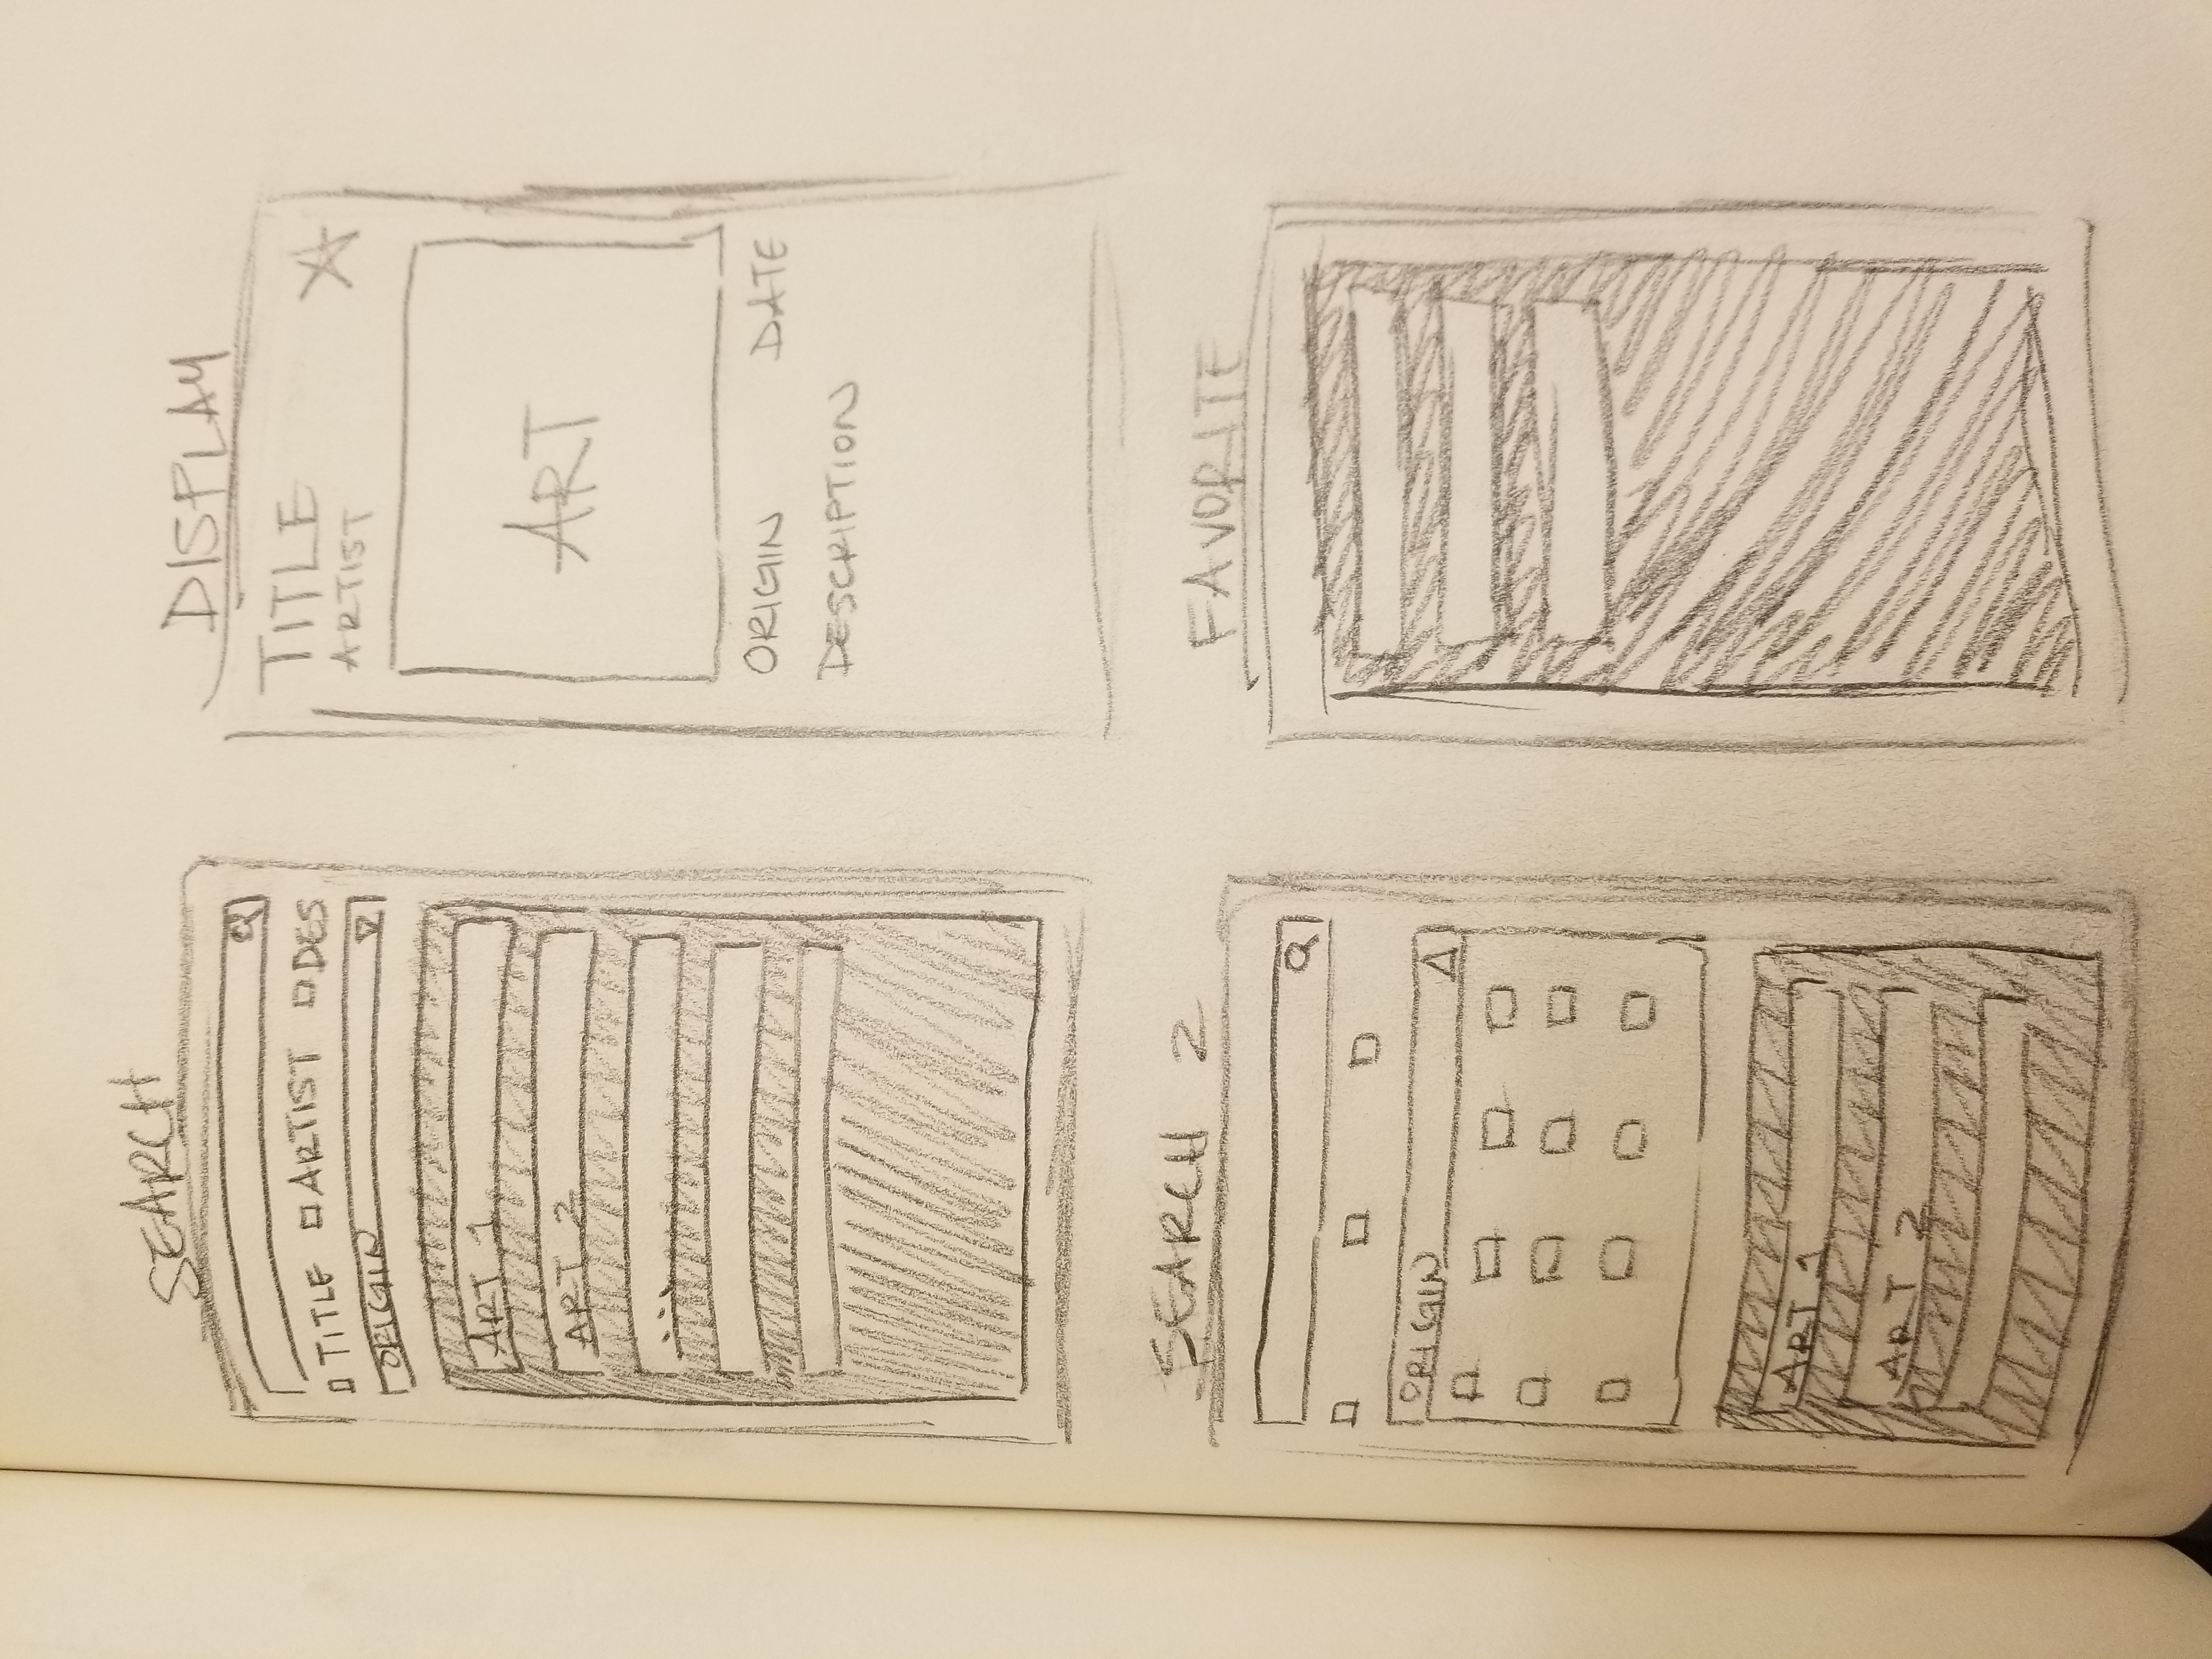 SEARCH
TITLE ARTIST DES
ORIGIN
ART 1
ART 2
...
DISPLAY
TITLE
ARTIST
ART
ORIGIN DATE
DESCRIPTION
SEARCH 2
ORIGIN
ART 1
ART 2
FAVORITE